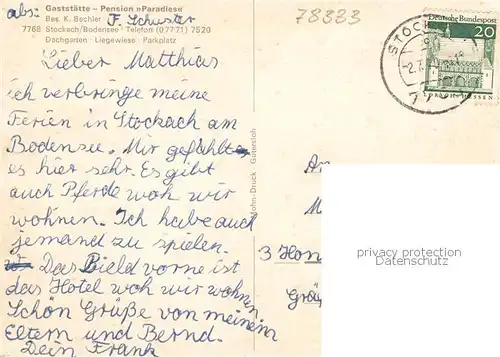 abs: Gaststätte – Pension »Paradies«
Bes. K. Bechler F. Schuster
7768 Stockach/Bodensee · Telefon (07771) 7520
Dachgarten · Liegewiese · Parkplatz
78323
STOCK
Deutsche Bundespost
20
LORSCH/HESSEN
Lieber Matthias
ich verbringe meine
Ferien in Stockach am
Bodensee. Mir gefählt
es hier sehr. Es gibt
auch Pferde woh wir
wohnen. Ich habe auch
jemand zu spielen.
Das Bield vorne ist
das Hotel woh wir wohnen.
Schön Grüße von meinem
Eltern und Bernd.
Dein Frank
An
M
3 Han
privacy protection
Datenschutz